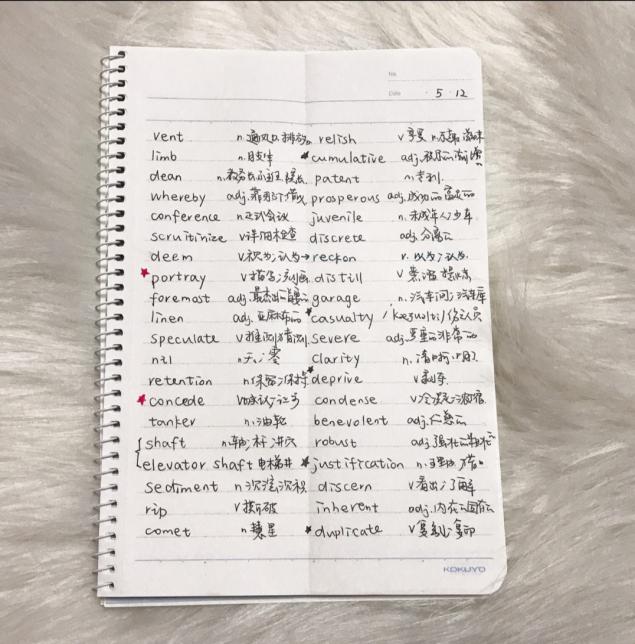 No.
Date 5 12
vent n.通风口 排放 relish v享受 n.乐趣 滋味
limb n.肢体 cumulative adj.积累的
dean n. patent n.专利
whereby adj. prosperous adj.成功的 富足的
conference n.正式会议 juvenile n.未成年人 少年
scruitinize v详细检查 discrete adj.分离的
deem v视为;认为→reckon v.以为;认为
portray v描写;刻画 distill v蒸馏
foremost adj.最杰出 garage n.汽车间;汽车库
linen adj.亚麻布的 casualty /ˈkæʒuəlti/伤亡人员
speculate v推测猜测 severe adj.严重的非常的
nil n.无;零 clarity n.清晰
retention n.保留;保持 deprive v剥夺
concede v承认;让步 condense v冷凝;浓缩
tanker n.油轮 benevolent adj.仁慈的
shaft n.轴;杆;井穴 robust adj.强壮的
elevator shaft 电梯井 justification n.
sediment n.沉渣沉积 discern v看出;了解
rip v撕破 inherent adj.内在的固有的
comet n.彗星 duplicate v复制;复印
KOKUYO